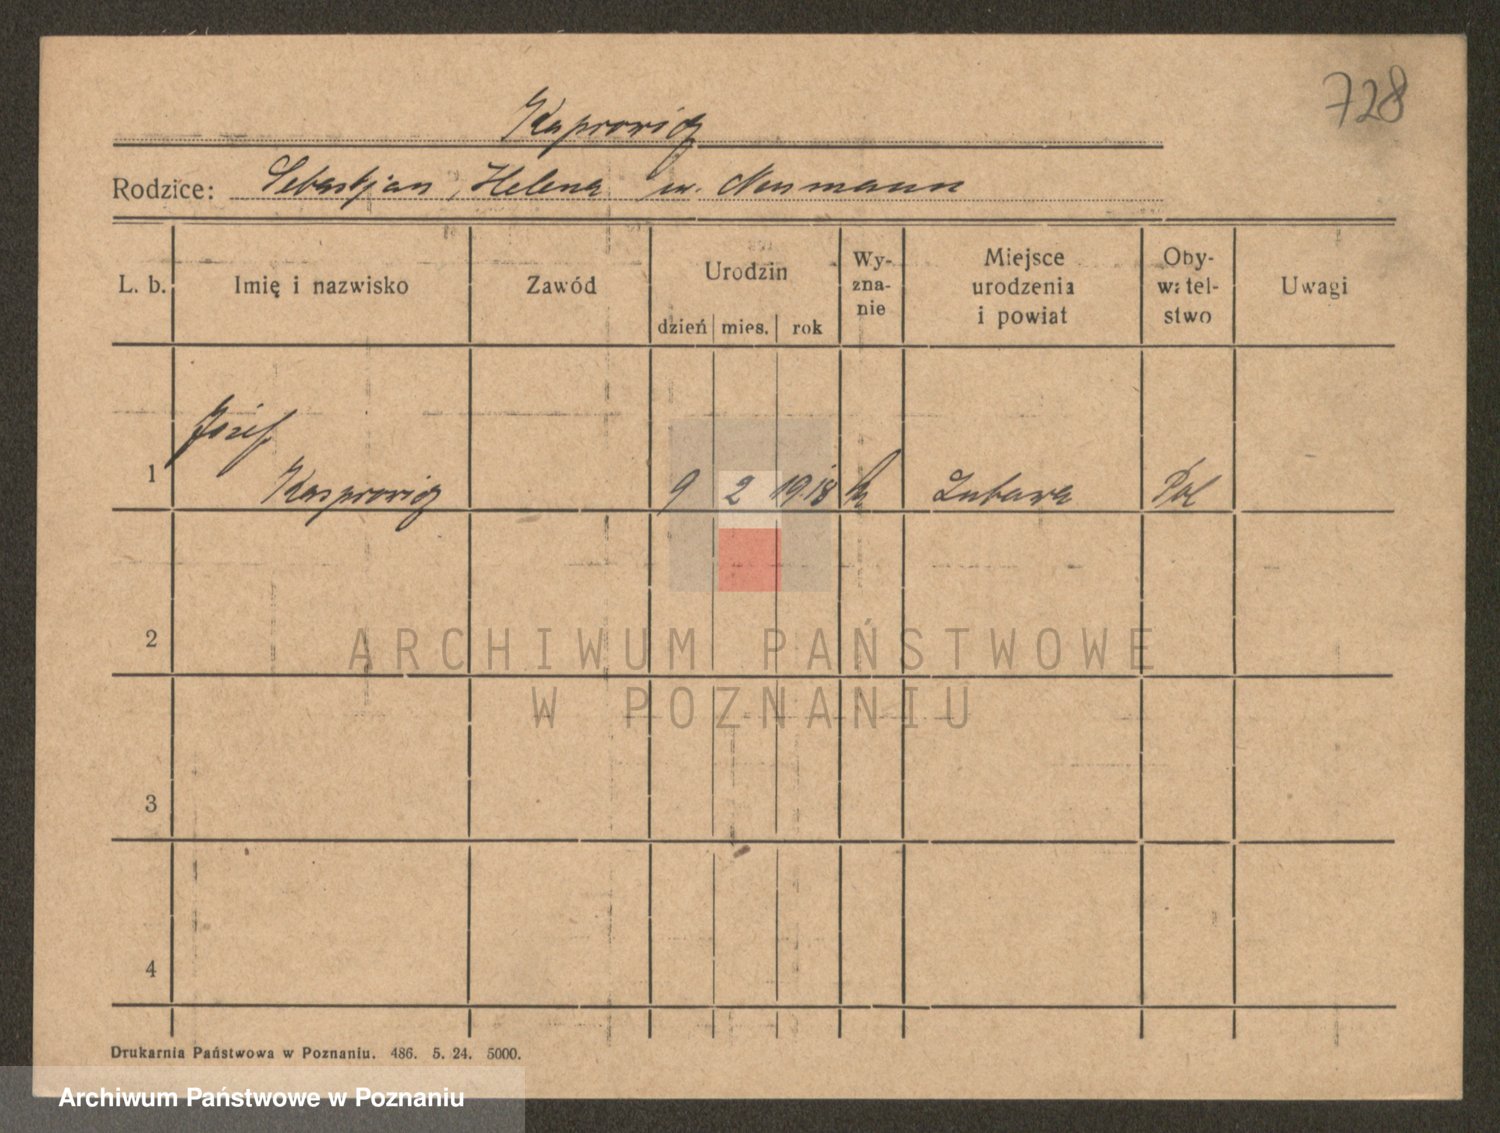 728
Kasprowicz
Rodzice: Sebastjan, Helena ur. Neumann
L. b. Imię i nazwisko Zawód Urodzin dzień mies. rok Wy-zna-nie Miejsce urodzenia i powiat Oby-watel-stwo Uwagi
Józef
1 Kasprowicz 9 2 1918 k Pol
2
3
4
Drukarnia Państwowa w Poznaniu. 486. 5. 24. 5000.
ARCHIWUM PAŃSTWOWE
W POZNANIU
Archiwum Państwowe w Poznaniu